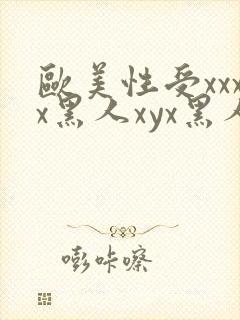 歐美性受xxx
x黑人xyx黑人
嘭咔嚓